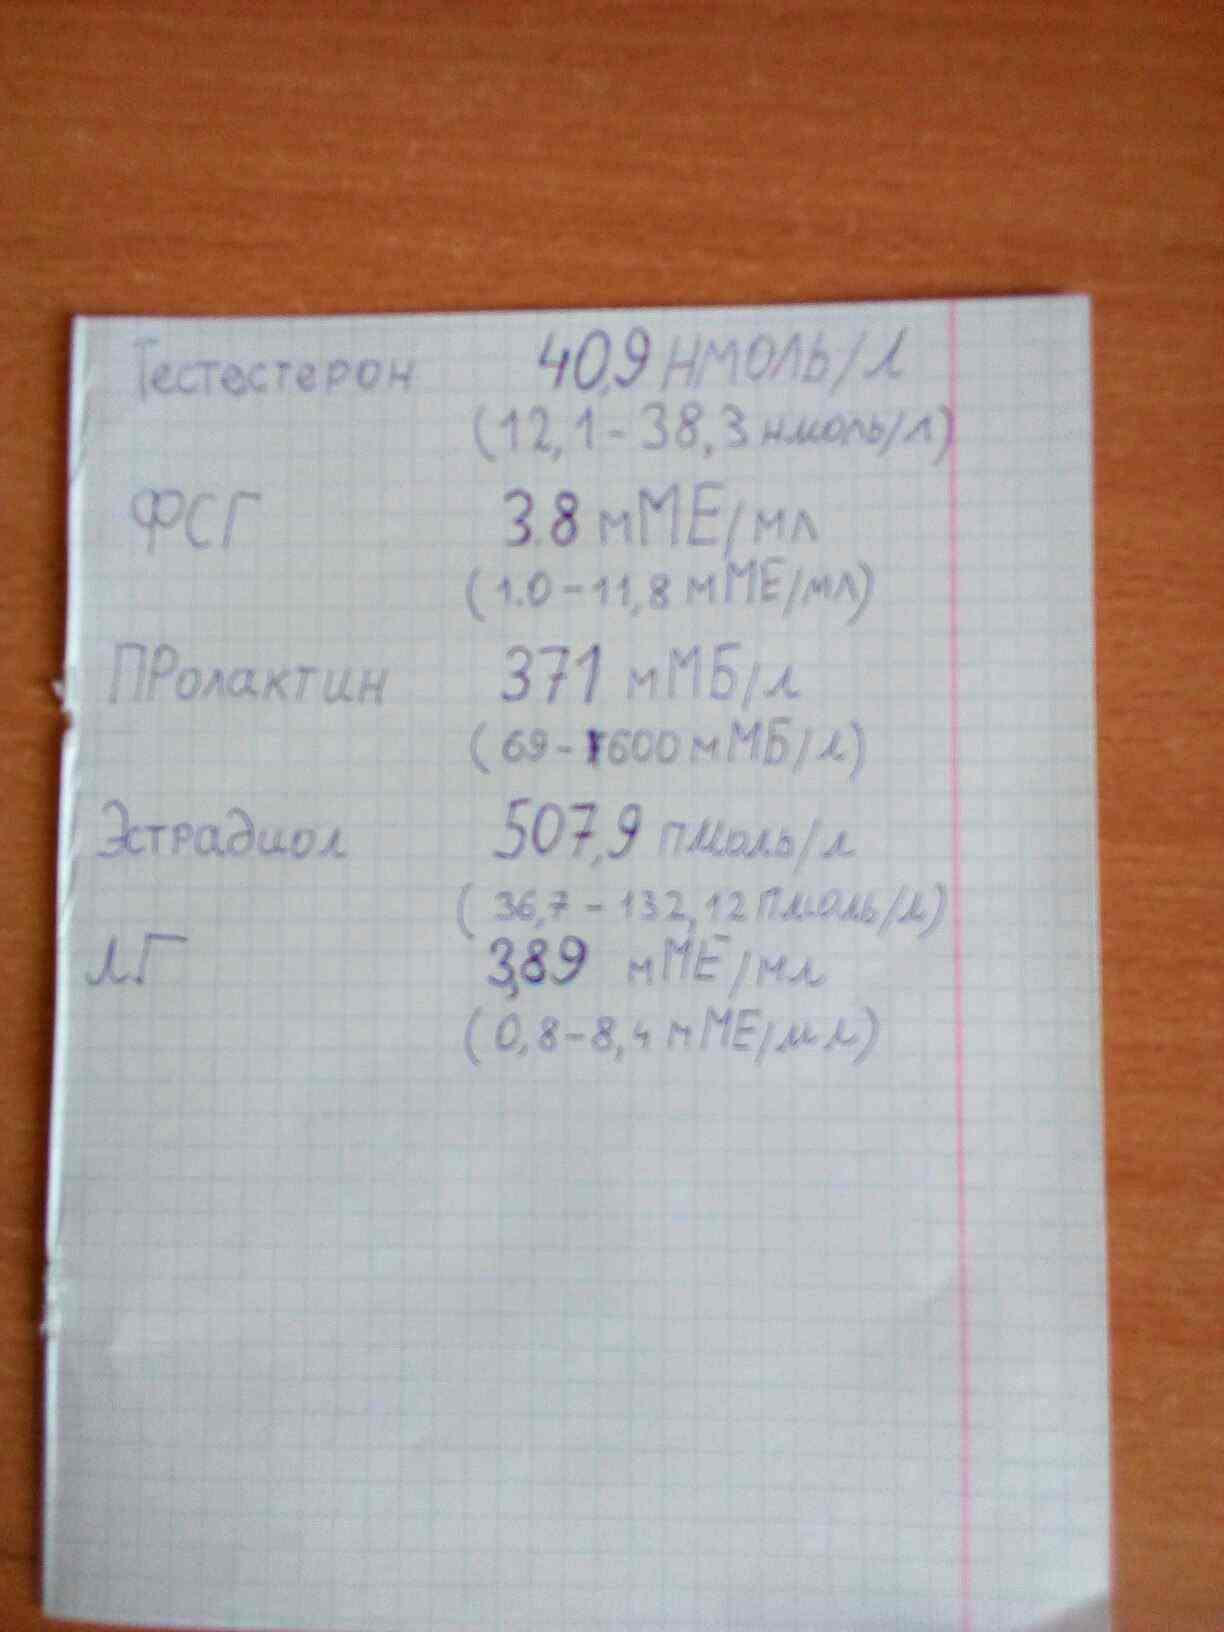 Тестестерон 40,9 нмоль/л
(12,1-38,3 нмоль/л)
ФСГ 3.8 мМЕ/мл
(1.0-11,8 мМЕ/мл)
ПРолактин 371 мМБ/л
(69-600 мМБ/л)
Эстрадиол 507,9 пмоль/л
(36,7-132,12 пмоль/л)
ЛГ 3,89 мМЕ/мл
(0,8-8,4 мМЕ/мл)